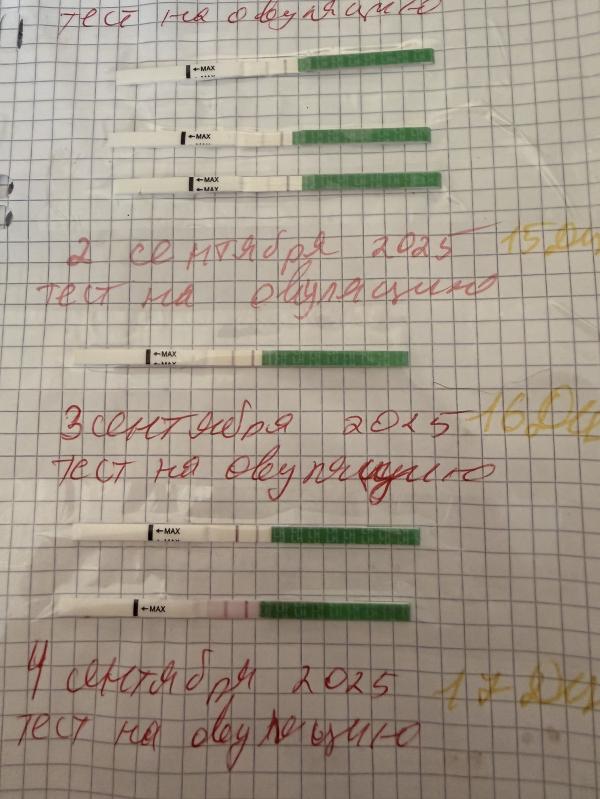 тест на овуляцию
←MAX
←MAX
←MAX
←MAX
2 сентября 2025 15 Дц
тест на овуляцию
←MAX
3 сентября 2025 16 Дц
тест на овуляцию
←MAX
←MAX
4 сентября 2025 17 Дц
тест на овуляцию